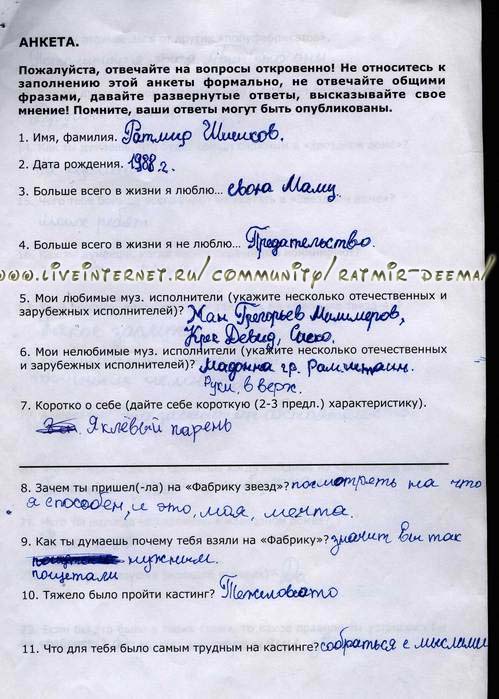 АНКЕТА.
Пожалуйста, отвечайте на вопросы откровенно! Не относитесь к
заполнению этой анкеты формально, не отвечайте общими
фразами, давайте развернутые ответы, высказывайте свое
мнение! Помните, ваши ответы могут быть опубликованы.
1. Имя, фамилия. Ратмир Шишков.
2. Дата рождения. 1988 г.
3. Больше всего в жизни я люблю... свою Маму.
4. Больше всего в жизни я не люблю... Предательство.
www.liveinternet.ru/community/ratmir-deema/
5. Мои любимые муз. исполнители (укажите несколько отечественных и
зарубежных исполнителей)? Жан Григорьев Милимеров,
Крег Девид, Сиско.
6. Мои нелюбимые муз. исполнители (укажите несколько отечественных
и зарубежных исполнителей)? Мадонна гр. Раммштаин.
Руки, в верх.
7. Коротко о себе (дайте себе короткую (2-3 предл.) характеристику).
Я клёвый парень
8. Зачем ты пришел(-ла) на «Фабрику звезд»? посмотреть на что
я способен, и это, моя, мечта.
9. Как ты думаешь почему тебя взяли на «Фабрику»? значит Вы так
нужным.
пощетали
10. Тяжело было пройти кастинг? Тежиловато
11. Что для тебя было самым трудным на кастинге? собраться с мыслями